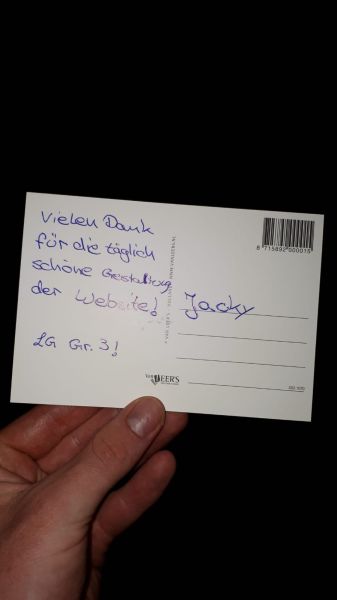 Vielen Dank
für die täglich
schöne Gestaltung
der Website!
LG Gr. 3!
Jacky
8 715892 000015
VAN VEER'S